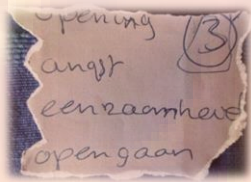 opening 3
angst
eenzaamheve
opengaan